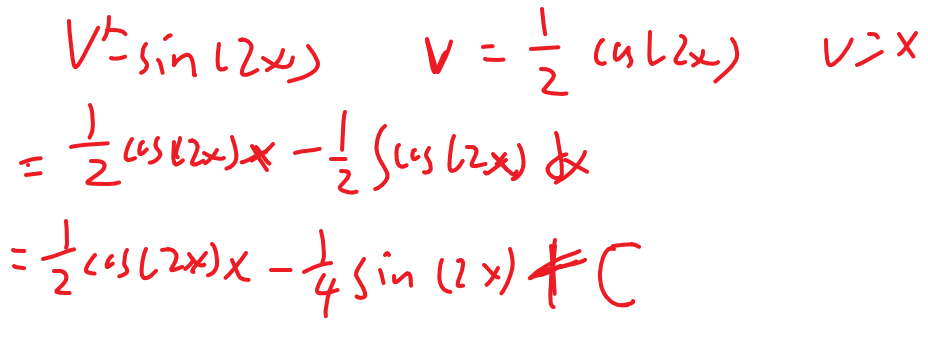 V'=sin(2x) V=1/2 cos(2x) v=x
=1/2 cos(2x)x-1/2∫cos(2x)dx
=1/2 cos(2x)x-1/4 sin(2x)+C